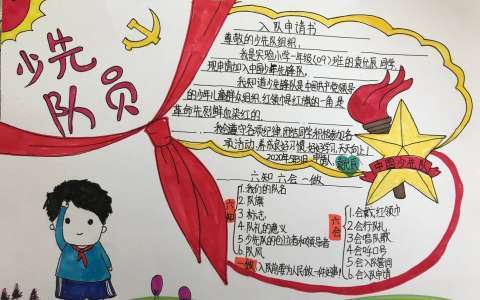 少先
队员
入队申请书
尊敬的少先队组织：
我是实验小学一年级(09)班的
同学,
现申请加入中国少年先锋队。
我知道少先队是中国共产党领导
的少年儿童群众组织,红领巾是红旗的一角,是
革命先烈鲜血染红的。
我会遵守各项纪律,团结同学,积极参加各
项活动,养成良好习惯,好好学习,天天向上!
2020年5月1日 申请人:
中国少先队
六知 六会 一做
六知
1.我们的队名
2.队旗
3.标志
4.队礼的意义
5.少先队的创立者和领导者
6.队风
六会
1.会戴红领巾
2.会行队礼
3.会唱队歌
4.会呼口号
5.会入队誓词
6.会入队申请
一做
入队前要为人民做一件好事!